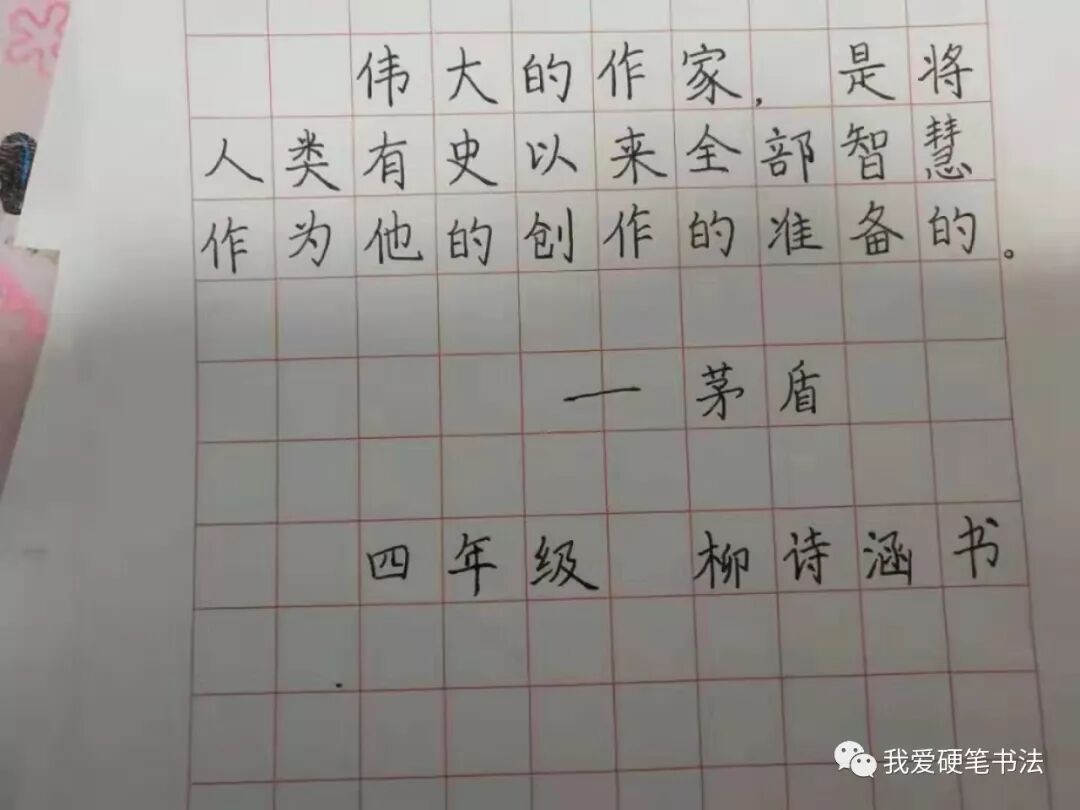 伟大的作家，是将
人类有史以来全部智慧
作为他的创作的准备的。
—茅盾
四年级 柳诗涵书
我爱硬笔书法